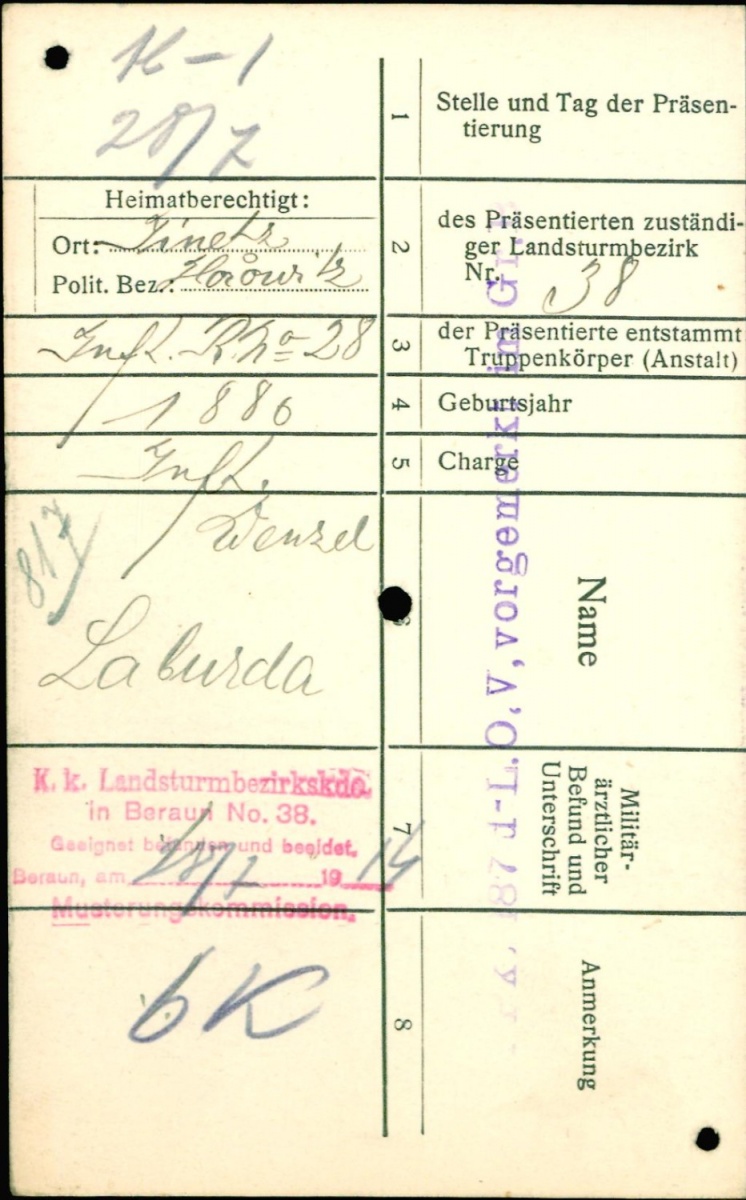 K-1
28/7
1
Stelle und Tag der Präsen-
tierung
Heimatberechtigt:
Ort: Jinetz
Polit. Bez.: Hořowitz
2
des Präsentierten zuständi-
ger Landsturmbezirk
Nr. 38
Inft. R. No 28
3
der Präsentierte entstammt
Truppenkörper (Anstalt)
1886
4
Geburtsjahr
Inft.
5
Charge
817
Wenzel
Laburda
Name
K. k. Landsturmbezirkskdo.
in Beraun No. 38.
Geeignet befunden und beeidet.
Beraun, am 28/7 1914
Musterungskommission.
7
Militär-
ärztlicher
Befund und
Unterschrift
6K
8
Anmerkung
vorgemerkt im G